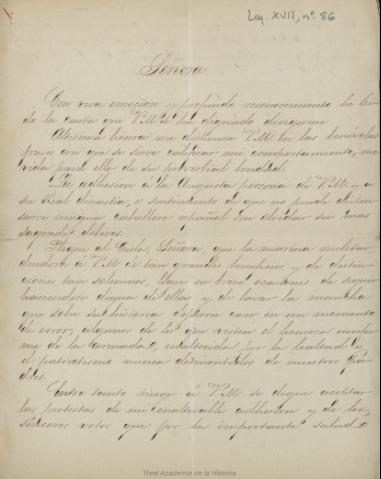 Leg. XVII, nº 86
Señora
Con viva emocion y profundo reconocimiento he lei-
do la carta que V.M. se ha dignado dirigirme
Altisima honra me dispensa V.M. en las benévolas
frases con que se sirve calificar mi comportamiento, mo-
vida para ello de su proverbial bondad.
La adhesion á la Augusta persona de V.M. y a
su Real dinastia, es sentimiento de que no puede dispen-
sarse ningun caballero español sin olvidar sus mas
sagrados deberes.
Plegue al Cielo, Señora, que la marina militar,
deudora á V.M. de tan grandes beneficios y de distin-
ciones tan solemnes, halle en breve ocasiones de seguir
haciendose digna de ellas y de lavar la mancha
que sobre su historia dejaron caer en un momento
de error, algunos de los que visten el honroso unifor-
me de la Armada, enaltecida por la lealtad y
el patriotismo nunca desmentidos de nuestros pa-
dres.
Entre tanto ruego á V.M. se digne aceptar
las protestas de mi inalterable adhesion y de los
sinceros votos que por la importante salud
Real Academia de la Historia